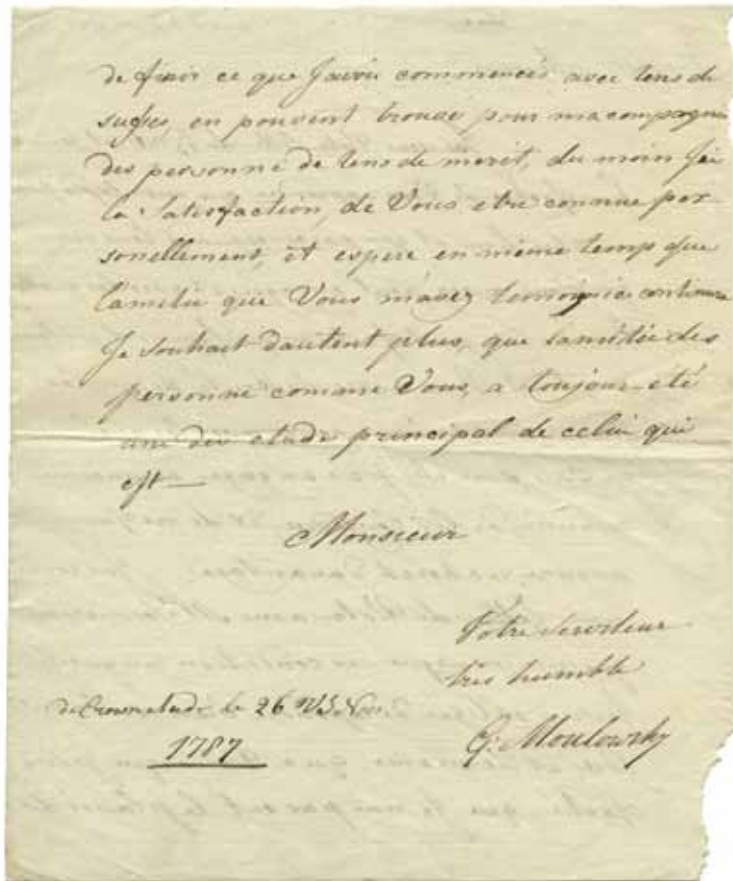 de finir ce que J'avoi commencés avec tens de
suffes en pouvent trouve pour ma compagne
des personne de tens de merit, du moin J'ai
la Satisfaction, de Vous etre connue per-
sonellement, et espere en meme temp que
l'amitié que Vous m'avez temoignie continura
Je souhait dautent plus, que lamitiée des
personne comme Vous, a toujour eté
une des etude principal de celui qui
est
Monsieur
Votre Serviteur
très humble
de Cronstadt le 26 Nov.
1787
G: Moulowsky